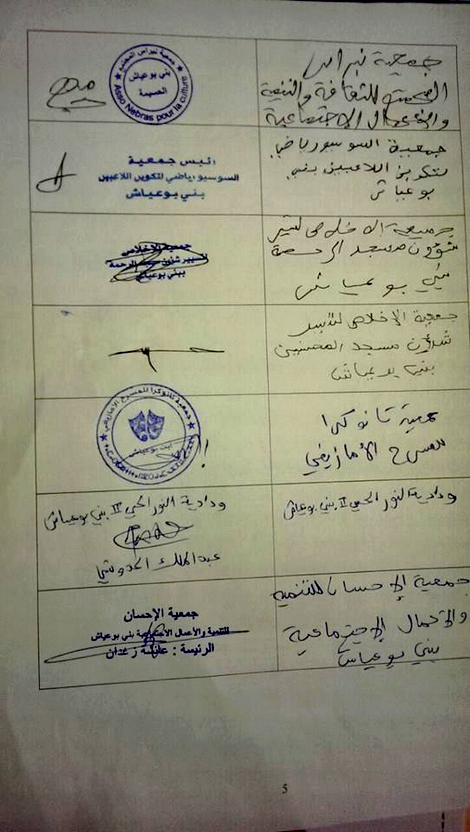 جمعية نبراس
للثقافة والتنمية
والأعمال الاجتماعية
جمعية نبراس المجتمع
بني بوعياش
الحسيمة
Asso Nebras pour la culture
جمعية السوسيو رياضي
لتكوين اللاعبين بني
بوعياش
رئيس جمعية
السوسيورياضي لتكوين اللاعبين
بني بوعياش
جمعية الاخلاص لتسير
شؤون مسجد الرحمة
بني بوعياش
جمعية الاخلاص
لتسيير شؤون مسجد الرحمة
ببني بوعياش
جمعية الإخلاص لتسير
شؤون مسجد المحسنين
بني بوعياش
جمعية تانوكرا
للمسرح الأمازيغي
جمعية تانوكرا للمسرح الأمازيغي
ايت بوعياش
ودادية النور الحي II بني بوعياش
ودادية النور الحي II بني بوعياش
عبد المالك
جمعية الإحسان للتنمية
والأعمال الإجتماعية
بني بوعياش
جمعية الإحسان
للتنمية والأعمال الاجتماعية بني بوعياش
الرئيسة :
5